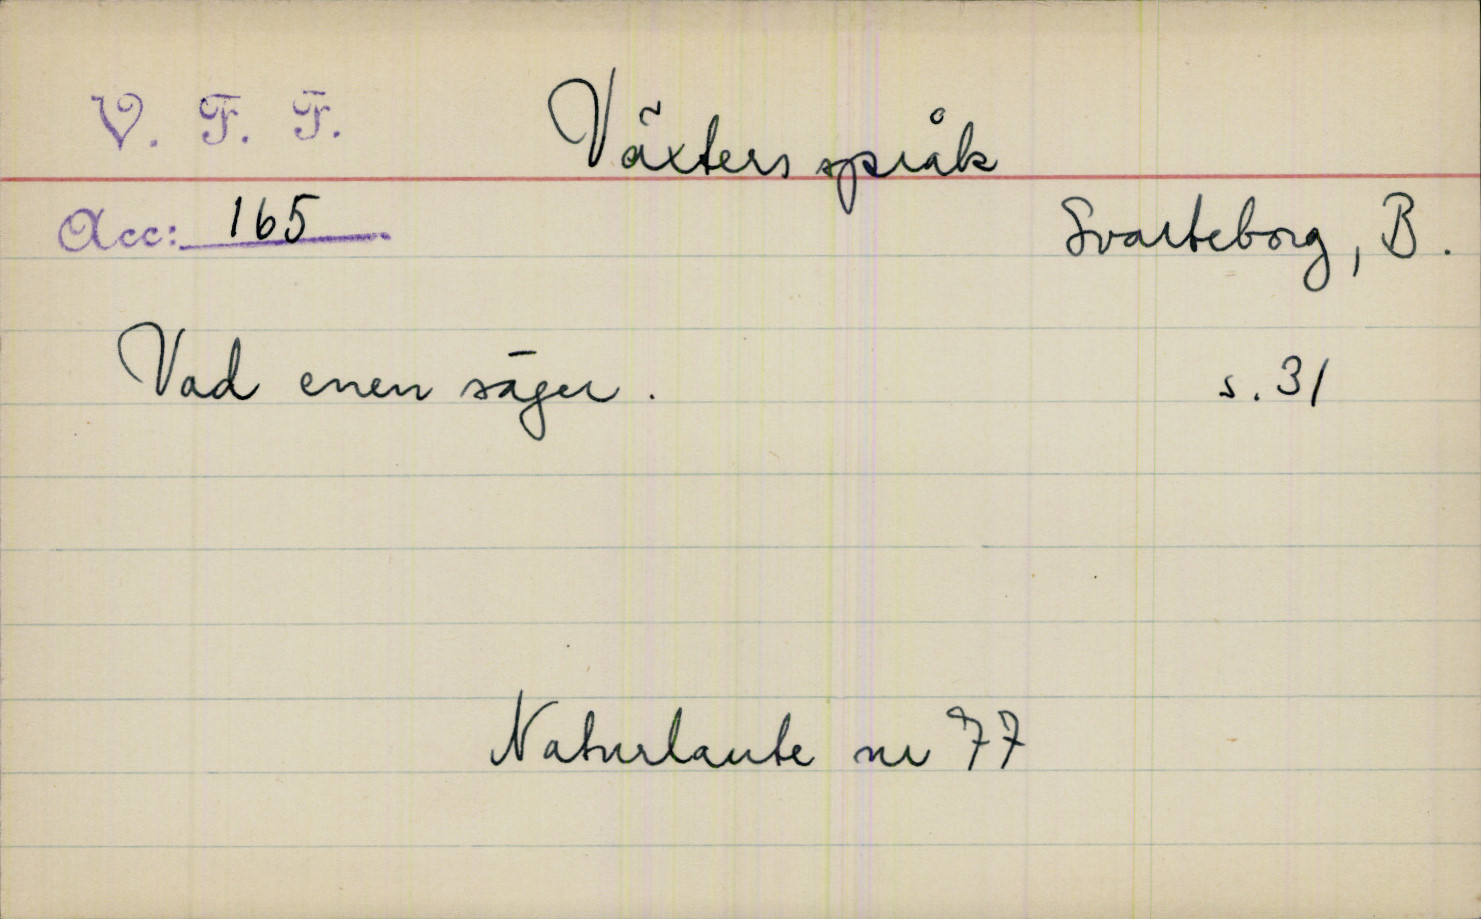 V. F. F.
Växters språk
Acc: 165
Svarteborg, B.
Vad enen säger. s. 31
Naturlaute nr 77